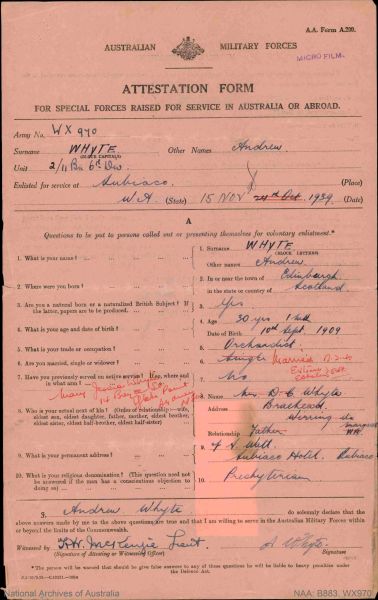 A.A. Form A.200.
AUSTRALIAN MILITARY FORCES
MICRO FILM
ATTESTATION FORM
FOR SPECIAL FORCES RAISED FOR SERVICE IN AUSTRALIA OR ABROAD.
Army No. WX 970
Surname WHYTE Other Names Andrew
(BLOCK CAPITALS)
Unit 2/11 Bn 6th Div.
Enlisted for service at Subiaco (Place)
W.A. (State) 15 NOV 24th Oct. 1939 (Date)
A
Questions to be put to persons called out or presenting themselves for voluntary enlistment.*
1. What is your name? 1. Surname WHYTE
(BLOCK LETTERS)
Other names Andrew
2. Where were you born? 2. In or near the town of Edinburgh
in the state or country of Scotland
3. Are you a natural born or a naturalized British Subject? If the latter, papers are to be produced. 3. Yes
4. What is your age and date of birth? 4. Age 30 yrs 1 mth
Date of Birth 10th Sept. 1909
5. What is your trade or occupation? 5. Orchardist
6. Are you married, single or widower? 6. Single Married
7. Have you previously served on active service? If so, where and in what arm? 7. No
8. Who is your actual next of kin? (Order of relationship:—wife, eldest son, eldest daughter, father, mother, eldest brother, eldest sister, eldest half-brother, eldest half-sister) 8. Name D. C. Whyte
Address Braehead
Relationship Father
9. What is your permanent address? 9. Subiaco Hotel. Subiaco
10. What is your religious denomination? (This question need not be answered if the man has a conscientious objection to doing so) 10. Presbyterian
I, Andrew Whyte do solemnly declare that the
above answers made by me to the above questions are true and that I am willing to serve in the Australian Military Forces within or beyond the limits of the Commonwealth.
Witnessed by McKenzie Lieut A Whyte
(Signature of Attesting or Witnessing Officer) Signature
* The person will be warned that should he give false answers to any of these questions he will be liable to heavy penalties under the Defence Act.
National Archives of Australia NAA: B883, WX970